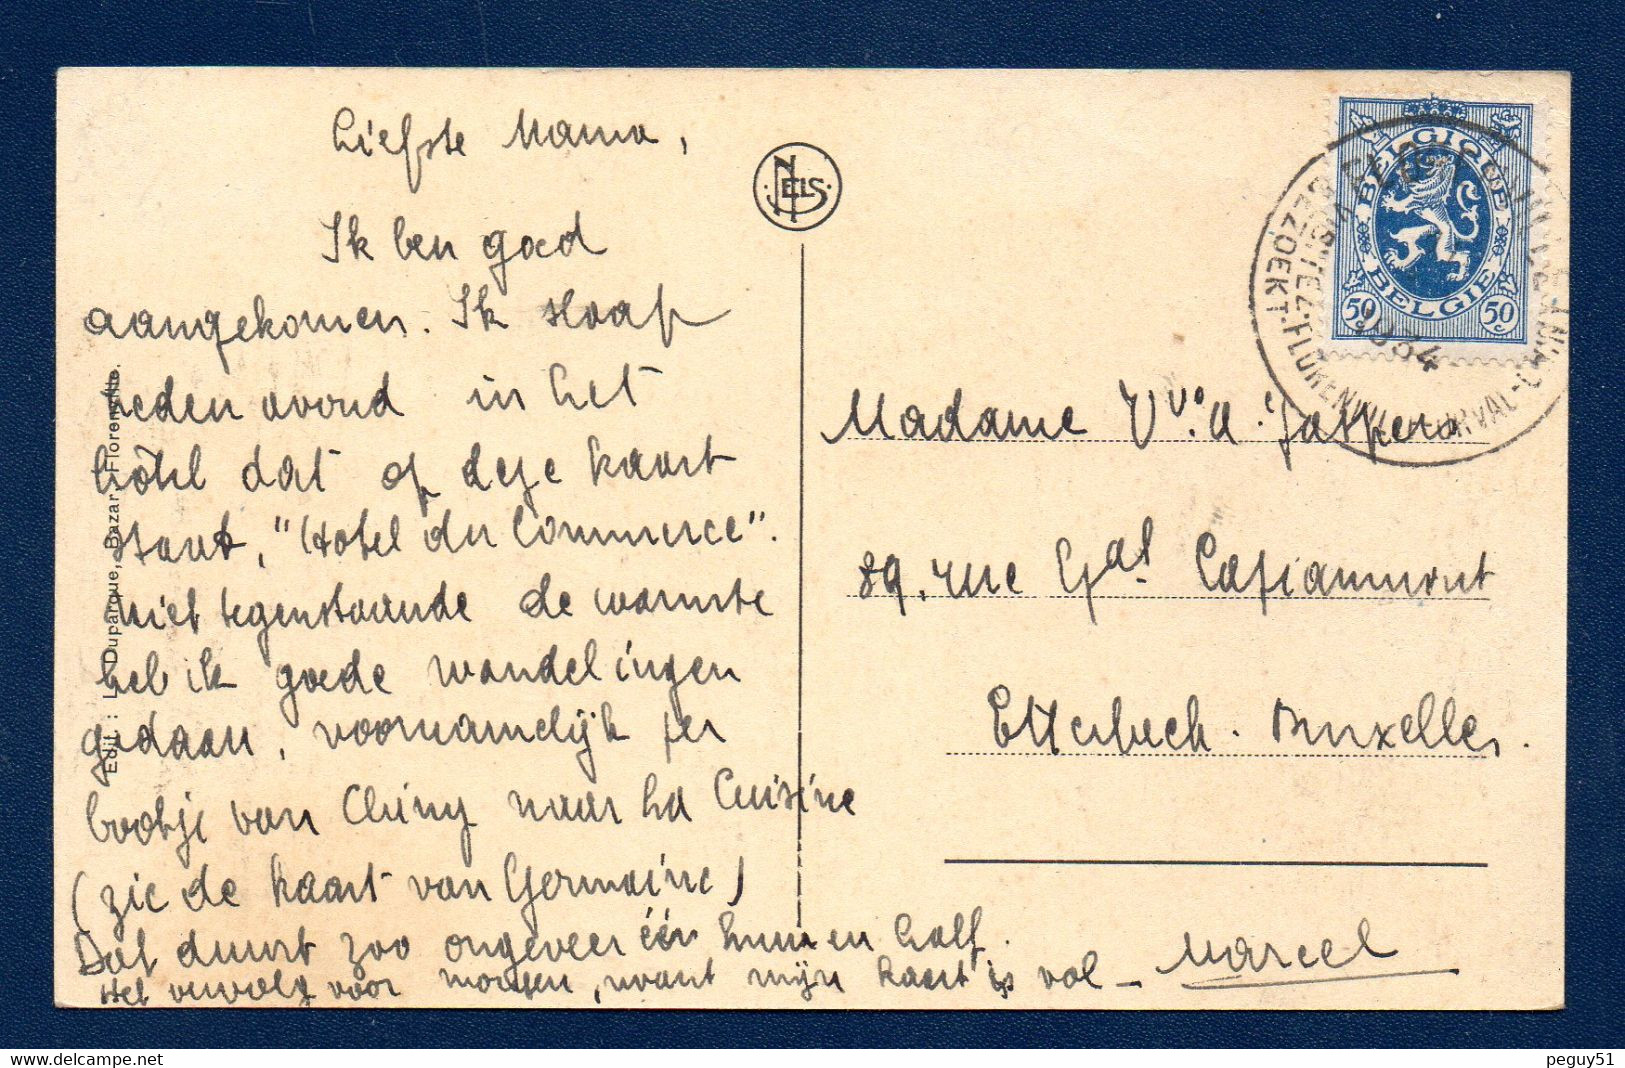 Liefste Mama,
Ik ben goed
aangekomen. Ik slaap
heden avond in het
hôtel dat op deze kaart
staat, "Hotel du Commerce".
Niettegenstaande de warmte
heb ik goede wandelingen
gedaan, voornamelijk per
bootje van Chiny naar La Cuisine
(zie de kaart van Germaine)
Dat duurt zoo ongeveer één uur en half.
Het vervolg voor morgen, want mijn kaart is vol - Marcel
Edit.: L. Duparque, Bazar, Florenville.
NELS
BELGIQUE
BELGIE
50c 50c
1934
VISITEZ-FLORENVILLE-ORVAL-
BEZOEKT-
Madame Vve. A. Jaspers
89. rue Gal. Capiaumont
Etterbeek. Bruxelles.
www.delcampe.net
peguy51